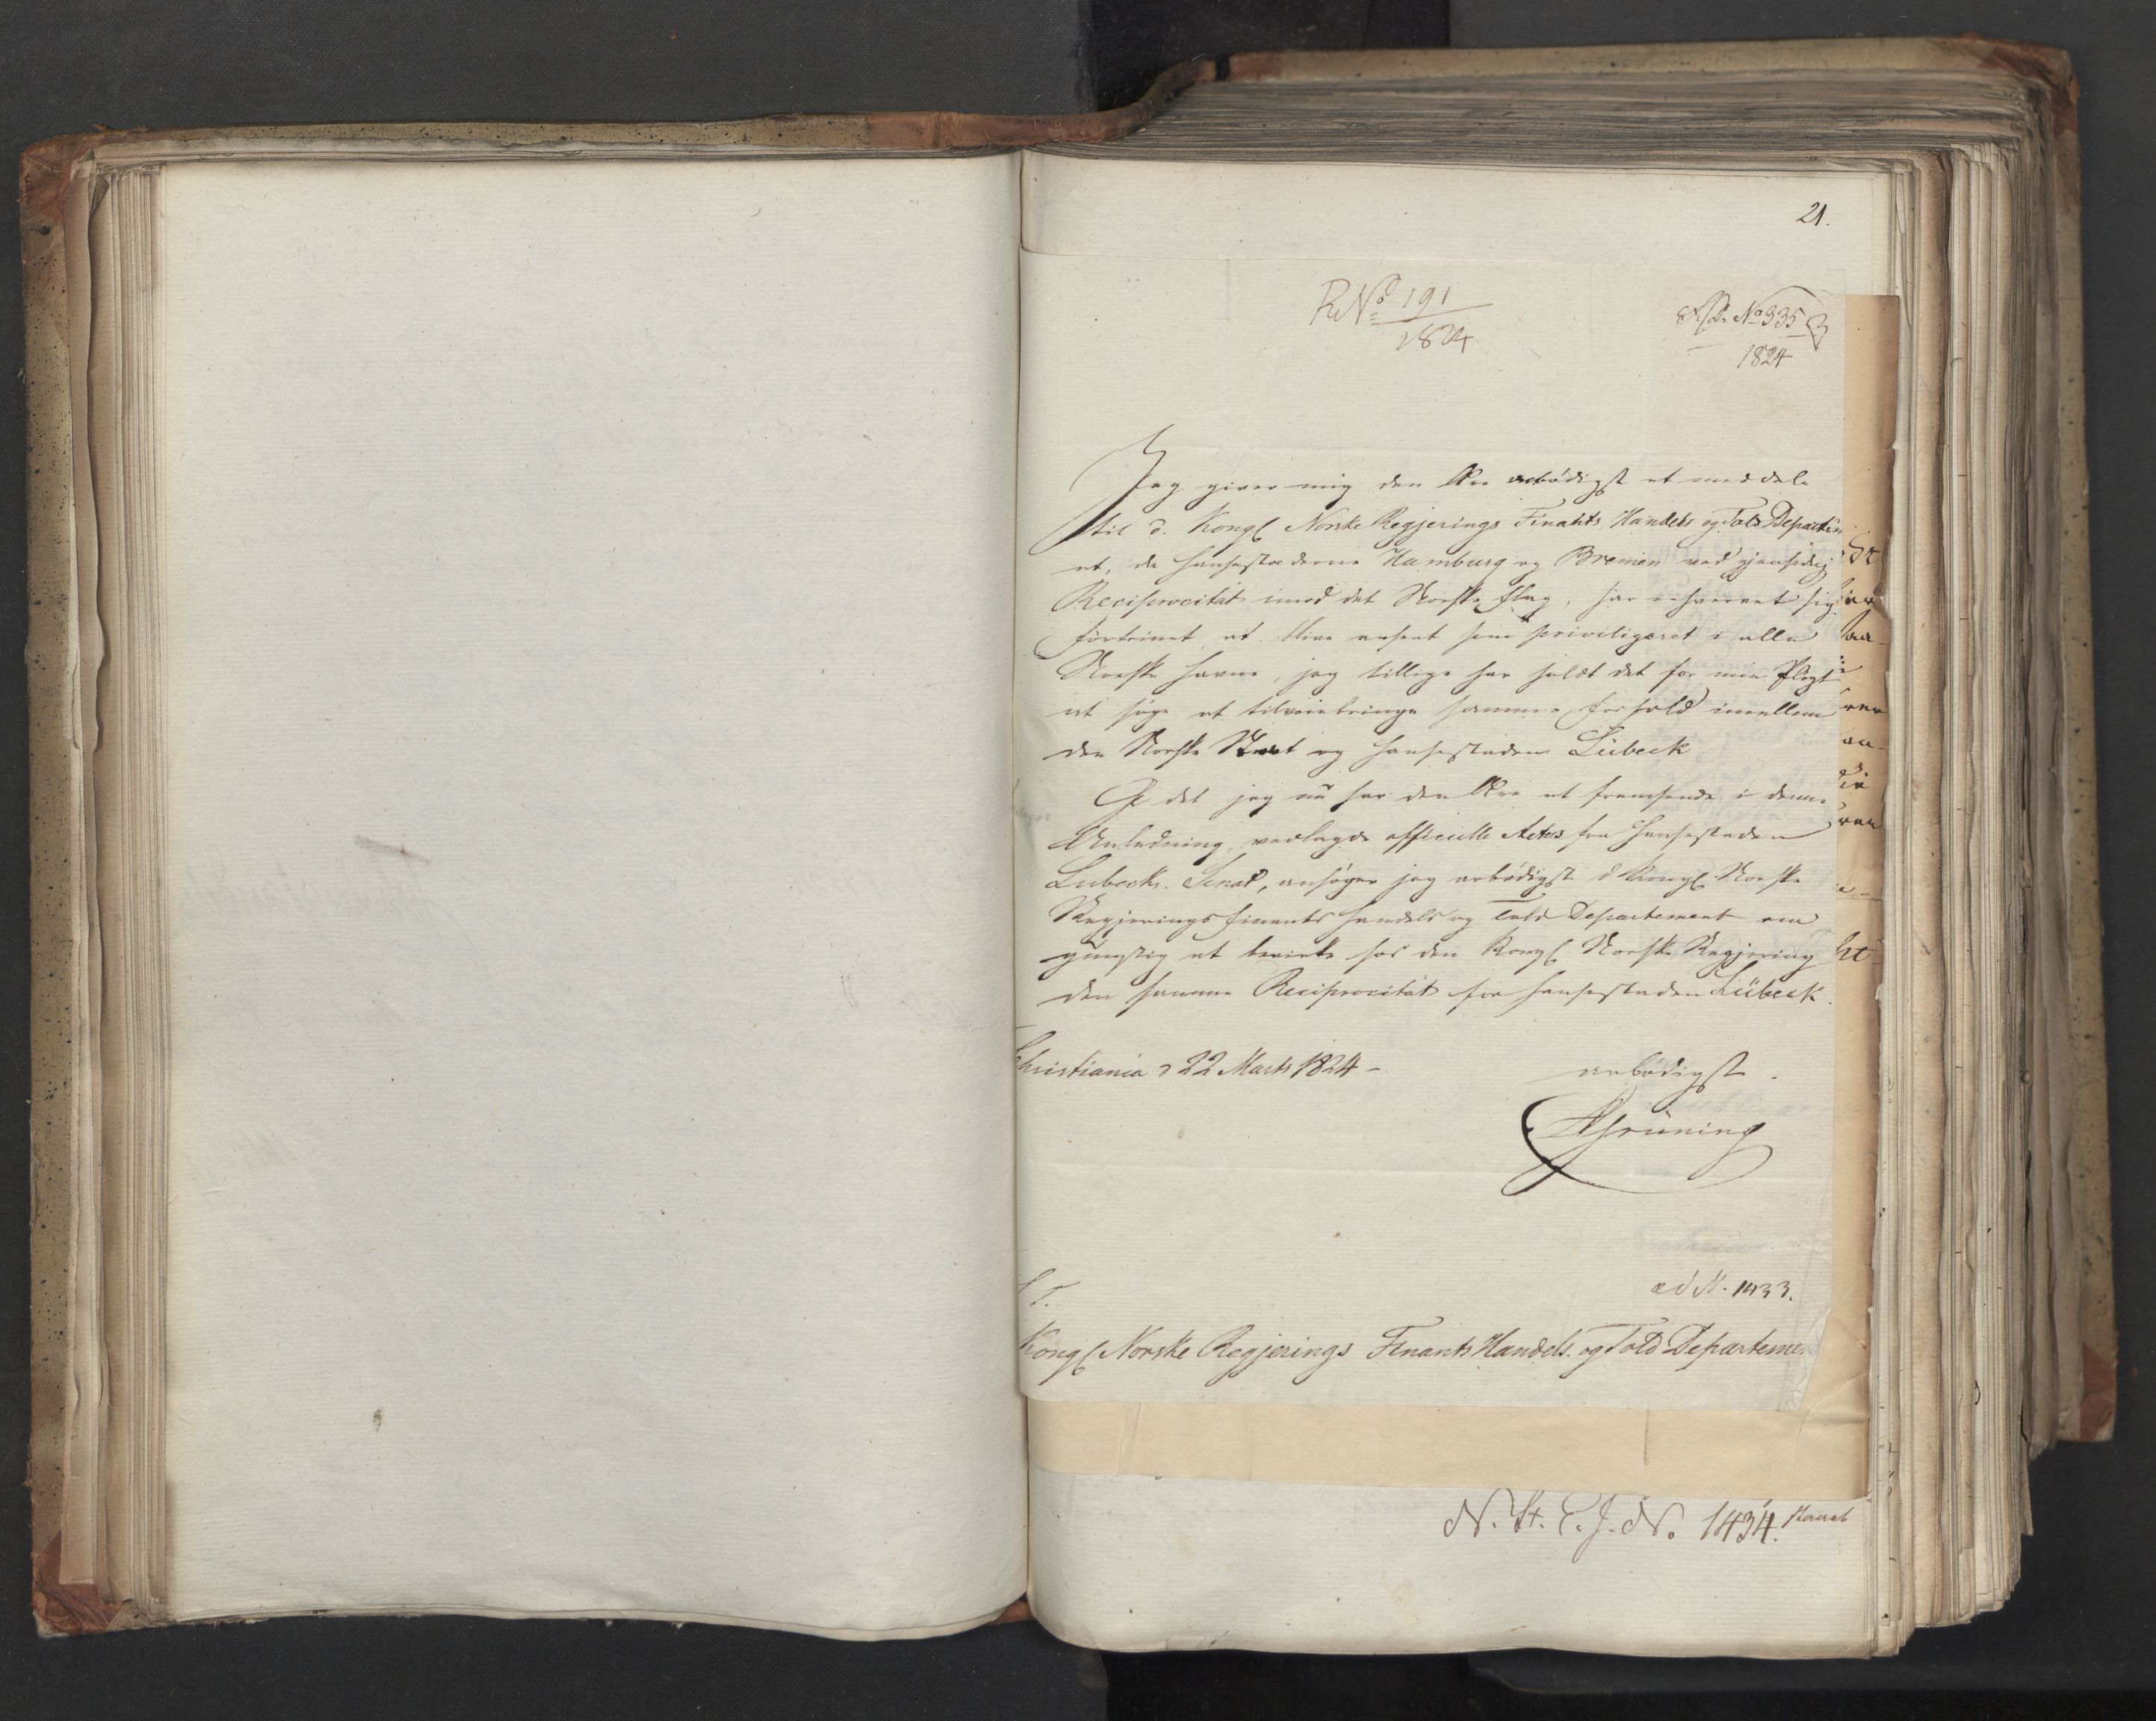 21.
RNo 191
1824
No 335
1824
Jeg giver mig den Ære ærbödigst at meddele
til d. Kongl Norske Regjerings Finants Handels og Told Departem
at, da Hansestæderne Hamburg og Bremen ved gjensidig
Reciprocität imod det Norske Flag, har erhvervet sig
Fortrinet at blive anseet som priviligeret i alle
Norske Havne, jeg tillige har holdt det for min Pligt
at söge at tilveiebringe samme Forhold imellem
den Norske Stat og Hansestaden Lübeck
I det jeg nu har den Ære at fremsende i denne
Anledning, vedlagde officielle Actes fra Hansestaden
Lubecks Senat, ansöger jeg ærbödigst d Kongl Norske
Regjerings Finants Handels og Told Departement om
gunstig at bevirke hos den Kongl Norske Regjering
den samme Reciprocität for Hansestaden Lübeck.
Christiania d 22 Marts 1824 -
ærbödigst
Grüning
ad N. 1433.
S. T.
Kongl Norske Regjerings Finants Handels. og Told Departeme
N. St. C. J. No. 1434.